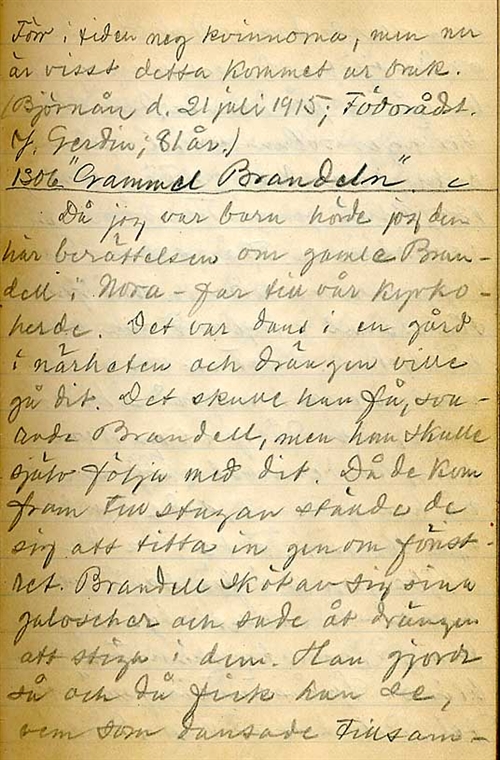 Förr i tiden neg kvinnorna, men nu
är visst detta kommet ur bruk.
(Björnån d. 21 juli 1915; Födorådst.
J. Gerdin; 81 år.)
1306 "Grammel Brandeln".
Då jag var barn hörde jag den
här berättelsen om gamle Bran-
dell i Nora - far till vår kyrko-
herde. Det var dans i en gård
i närheten och drängen ville
gå dit. Det skulle han få, sva-
rade Brandell, men han skulle
själv följa med dit. Då de kom
fram till stugan stände de
sig att titta in genom fönst-
ret. Brandell sköt av sig sina
galoscher och sade åt drängen
att stiga i dem. Han gjorde
så och då fick han se,
vem som dansade tillsam-